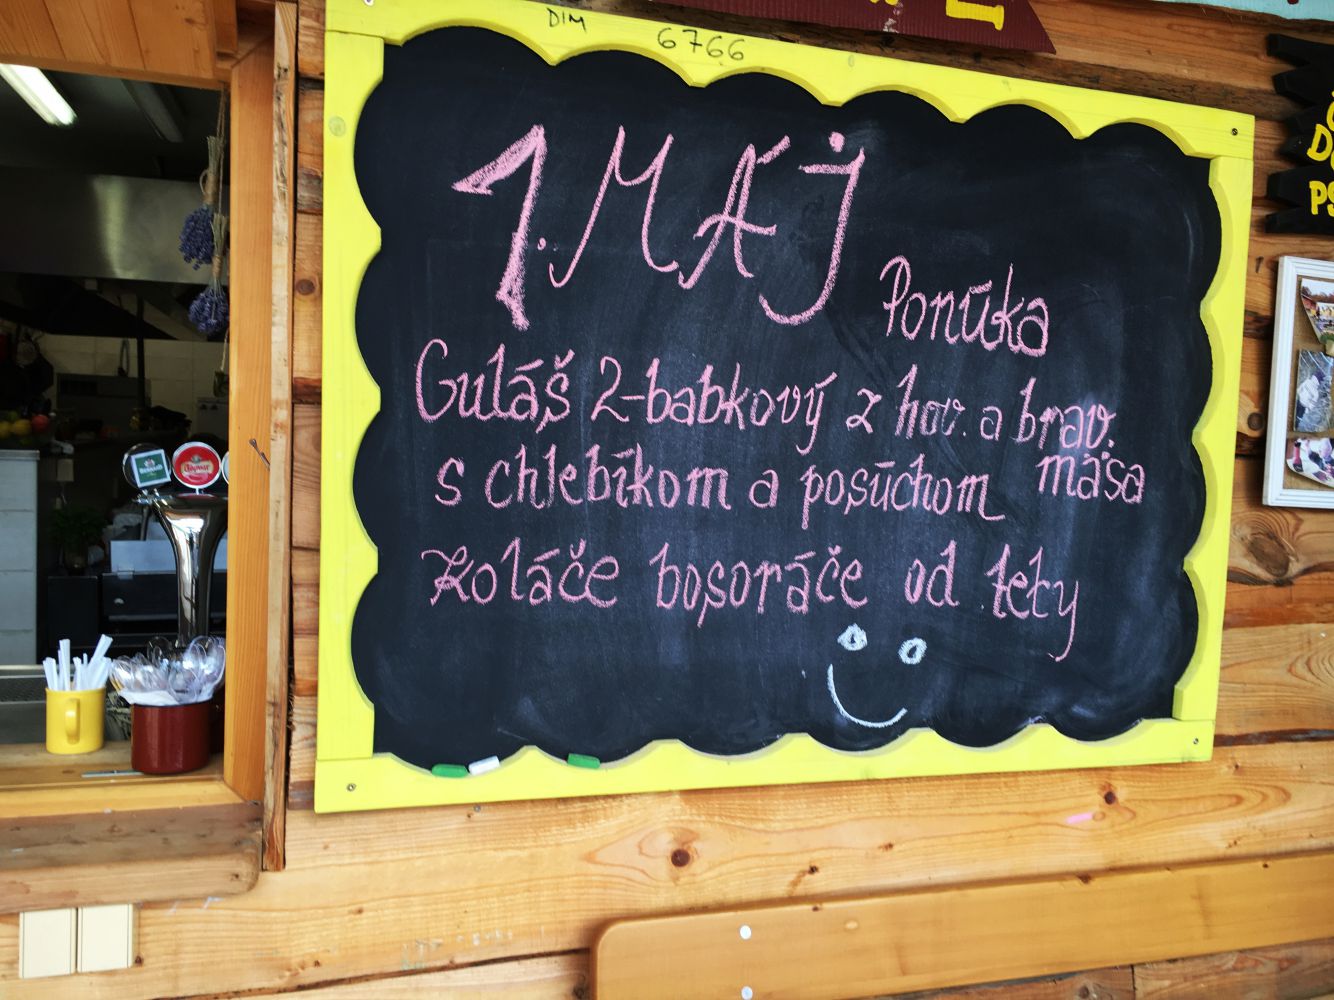 DIM 6766
1. MÁJ
Ponúka
Guláš 2-babkový z hov. a brav.
mäsa
s chlebíkom a posúchom
Koláče bosoráče od tety